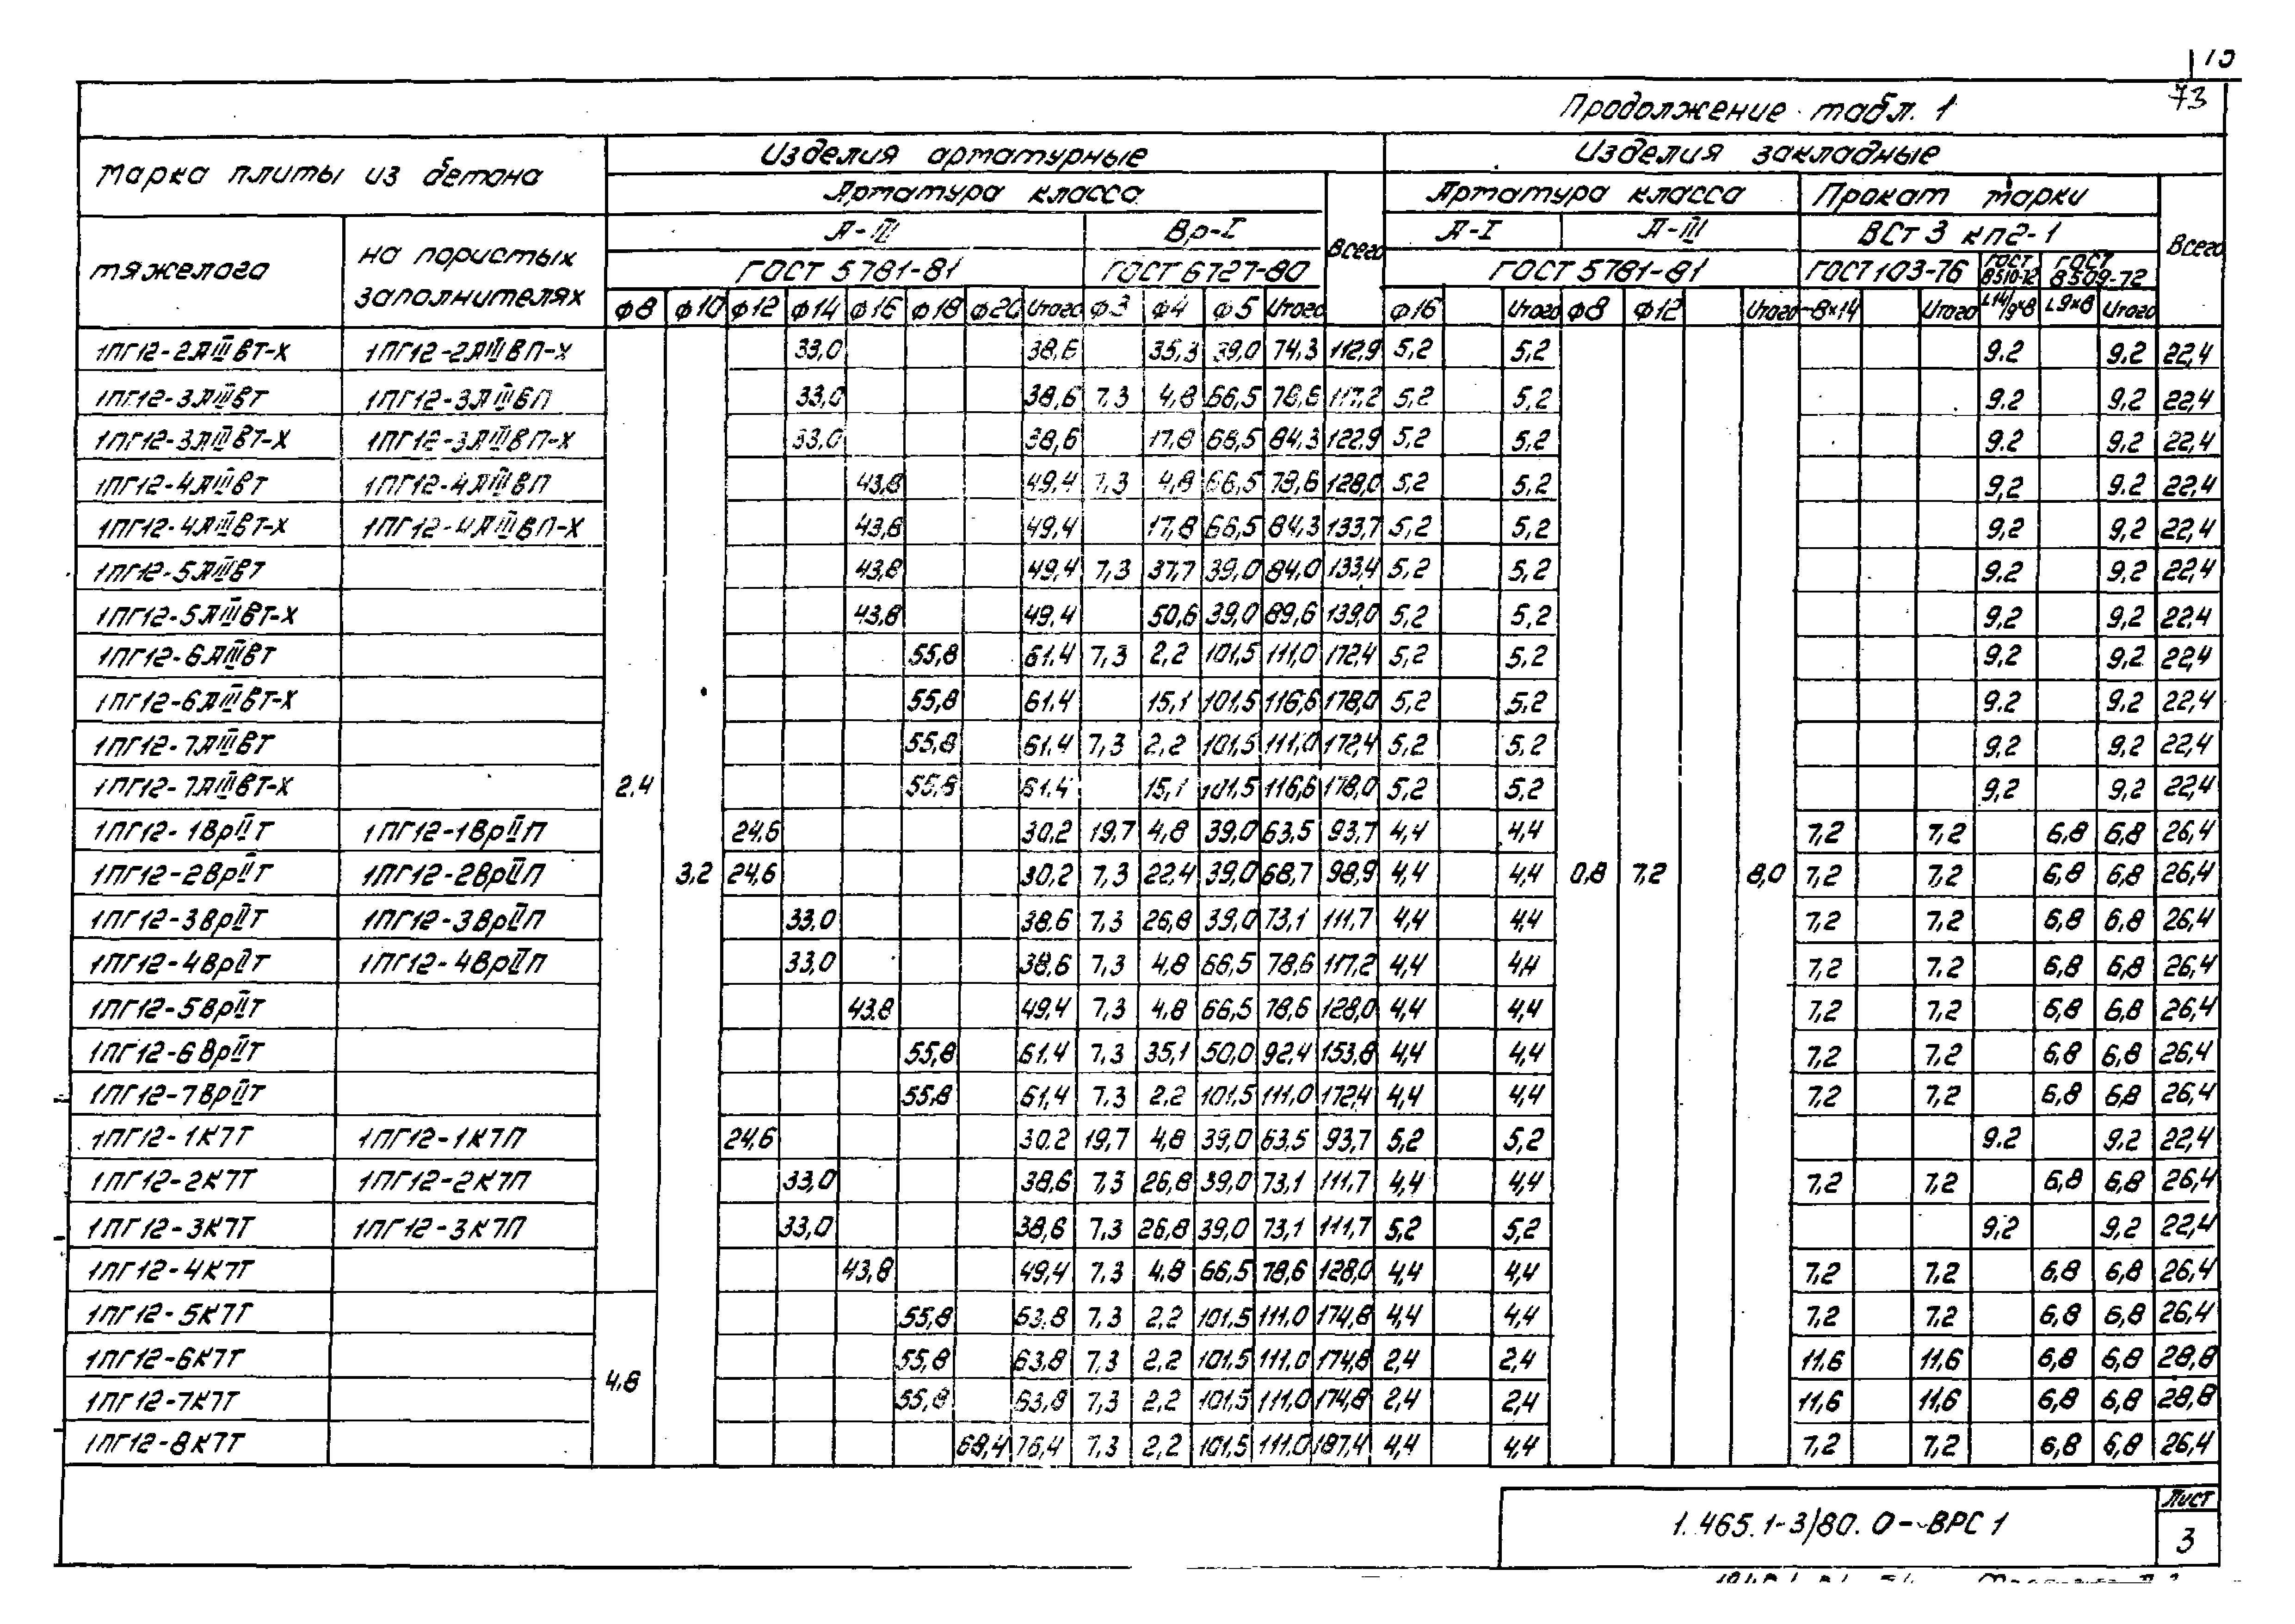 73
Продолжение табл. 1
Марка плиты из бетона Изделия арматурные Изделия закладные
Арматура класса Всего Арматура класса Прокат марки Всего
тяжелого на пористых заполнителях А-III Вр-I А-I А-III ВСт 3 кп2-1
ГОСТ 5781-81 ГОСТ 6727-80 ГОСТ 5781-81 ГОСТ 103-76 ГОСТ 8510-72 ГОСТ 8509-72
ф8 ф10 ф12 ф14 ф16 ф18 ф20 Итого ф3 ф4 ф5 Итого ф16 Итого ф8 ф12 Итого -8×14 Итого L14/9×8 L9×8 Итого
1ПГ12-2АIIIвТ-Х 1ПГ12-2АIIIвП-Х 33,0 38,6 35,3 39,0 74,3 112,9 5,2 5,2 9.2 9.2 22,4
1ПГ12-3АIIIвТ 1ПГ12-3АIIIвП 33,0 38,6 7,3 4,8 66,5 78,6 117,2 5,2 5,2 9.2 9,2 22,4
1ПГ12-3АIIIвТ-Х 1ПГ12-3АIIIвП-Х 33,0 38,6 17,8 66,5 84,3 122,9 5,2 5,2 9.2 9,2 22,4
1ПГ12-4АIIIвТ 1ПГ12-4АIIIвП 43,8 49,4 7,3 4,8 66,5 78,6 128,0 5,2 5,2 9,2 9.2 22,4
1ПГ12-4АIIIвТ-Х 1ПГ12-4АIIIвП-Х 43,8 49,4 17,8 66,5 84,3 133,7 5,2 5,2 9,2 9,2 22,4
1ПГ12-5АIIIвТ 43,8 49,4 7,3 37,7 39,0 84,0 133,4 5,2 5,2 9.2 9,2 22,4
1ПГ12-5АIIIвТ-Х 43,8 49,4 50,6 39,0 89,6 139,0 5,2 5,2 9.2 9,2 22,4
1ПГ12-6АIIIвТ 55,8 61.4 7,3 2,2 101,5 111,0 172,4 5,2 5,2 9,2 9,2 22,4
1ПГ12-6АIIIвТ-Х 55,8 61.4 15,1 101,5 116,6 178,0 5,2 5,2 9.2 9.2 22,4
1ПГ12-7АIIIвТ 55,8 61.4 7,3 2,2 101,5 111,0 172,4 5,2 5,2 9,2 9,2 22,4
1ПГ12-7АIIIвТ-Х 2.4 55,8 61.4 15,1 101,5 116,6 178,0 5,2 5,2 9,2 9,2 22,4
1ПГ12-1ВрIIТ 1ПГ12-1ВрIIП 24,6 30,2 19,7 4,8 39,0 63,5 93,7 4,4 4,4 7,2 7,2 6,8 6,8 26,4
1ПГ12-2ВрIIТ 1ПГ12-2ВрIIП 3,2 24,6 30,2 7,3 22,4 39,0 68,7 98,9 4,4 4,4 0,8 7,2 8,0 7,2 7,2 6,8 6,8 26,4
1ПГ12-3ВрIIТ 1ПГ12-3ВрIIП 33,0 38,6 7,3 26,8 39,0 73,1 111,7 4,4 4,4 7,2 7,2 6,8 6,8 26,4
1ПГ12-4ВрIIТ 1ПГ12-4ВрIIП 33,0 38,6 7,3 4,8 66,5 78,6 117,2 4,4 4,4 7,2 7.2 6,8 6,8 26,4
1ПГ12-5ВрIIТ 43.8 49,4 7,3 4,8 66,5 78,6 128,0 4,4 4,4 7,2 7,2 6,8 6,8 26,4
1ПГ12-6ВрIIТ 55,8 61.4 7,3 35,1 50,0 92,4 153,8 4,4 4,4 7,2 7,2 6,8 6,8 26,4
1ПГ12-7ВрIIТ 55,8 61,4 7,3 2,2 101,5 111,0 172,4 4,4 4,4 7,2 7,2 6,8 6,8 26,4
1ПГ12-1К7Т 1ПГ12-1К7П 24,6 30.2 19,7 4,8 39,0 63,5 93,7 5,2 5,2 9.2 9.2 22,4
1ПГ12-2К7Т 1ПГ12-2К7П 33,0 38,6 7,3 26,8 39,0 73,1 111,7 4,4 4,4 7,2 7,2 6,8 6,8 26,4
1ПГ12-3К7Т 1ПГ12-3К7П 33,0 38,6 7,3 26,8 39,0 73,1 111,7 5,2 5,2 9,2 9,2 22,4
1ПГ12-4К7Т 43,8 49,4 7,3 4,8 66,5 78,6 128,0 4,4 4,4 7,2 7,2 6,8 6,8 26,4
1ПГ12-5К7Т 55,8 63,8 7,3 2,2 101,5 111,0 174,8 4,4 4,4 7,2 7,2 6,8 6,8 26,4
1ПГ12-6К7Т 4,8 55,8 63,8 7,3 2,2 101,5 111,0 174,8 2,4 2,4 11,6 11,6 6,8 6,8 28,8
1ПГ12-7К7Т 55,8 63,8 7,3 2,2 101,5 111,0 174,8 2,4 2,4 11,6 11,6 6,8 6,8 28,8
1ПГ12-8К7Т 68,4 76,4 7,3 2,2 101,5 111,0 187,4 4,4 4,4 7,2 7,2 6,8 6,8 26,4
1.465.1-3/80.0-ВРС1
Лист
3